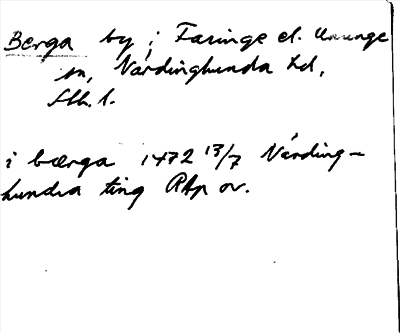 Berga by i Faringe el. Ununge
sn, Närdinghunda hd,
Sth. l.
i bærga 1472 13/7 Närding-
hundra ting RAp or.